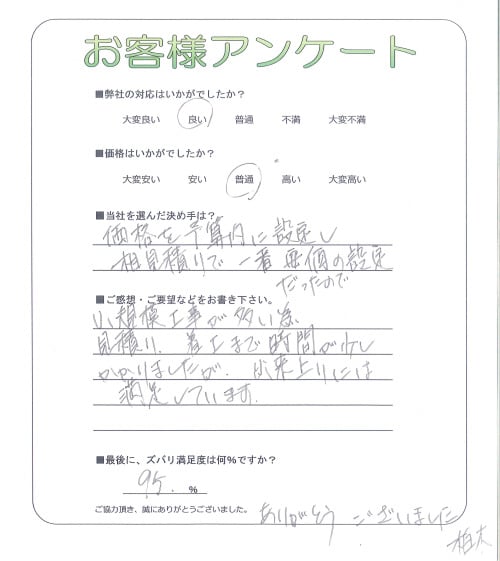 お客様アンケート
■弊社の対応はいかがでしたか？
大変良い 良い 普通 不満 大変不満
■価格はいかがでしたか？
大変安い 安い 普通 高い 大変高い
■当社を選んだ決め手は？
価格を予算内に設定し
相見積りで一番安価の設定
だったので
■ご感想・ご要望などをお書き下さい。
小規模工事が多い為
見積り、着工まで時間が少し
かかりましたが、出来上りには
満足しています。
■最後に、ズバリ満足度は何%ですか？
95. %
ご協力頂き、誠にありがとうございました。
ありがとう ございました